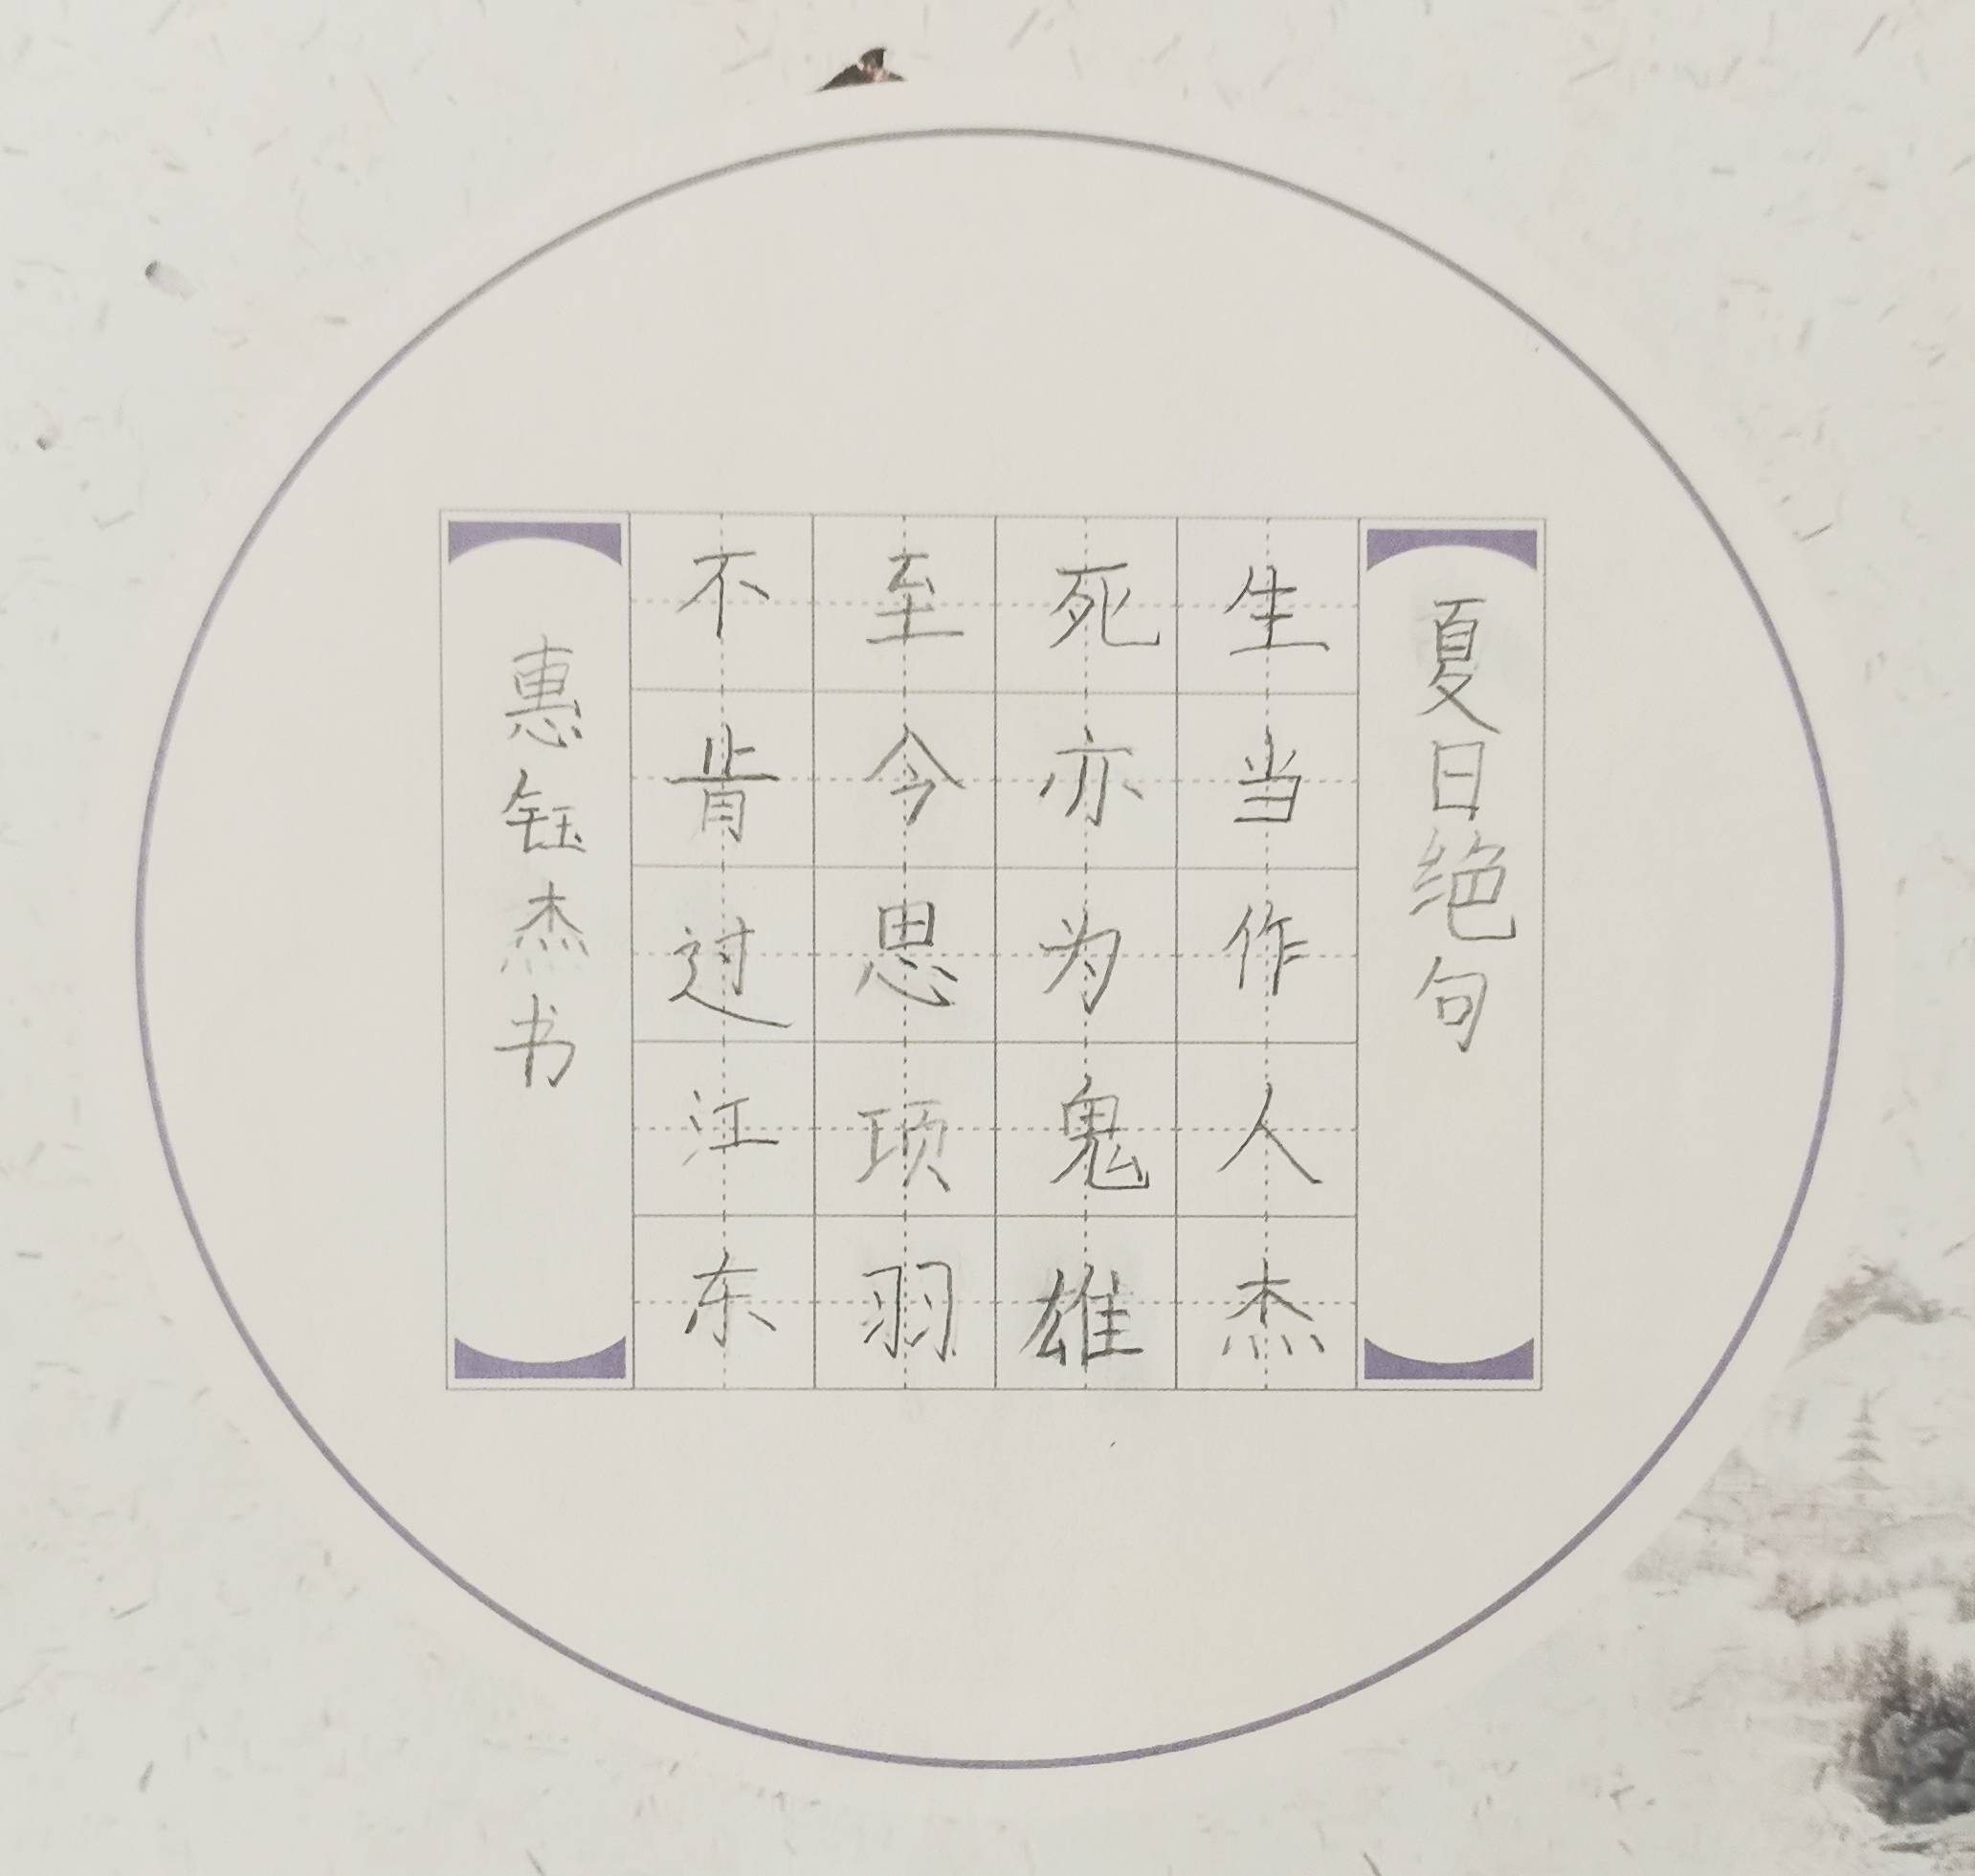 夏日绝句
生当作人杰
死亦为鬼雄
至今思项羽
不肯过江东
惠钰杰书